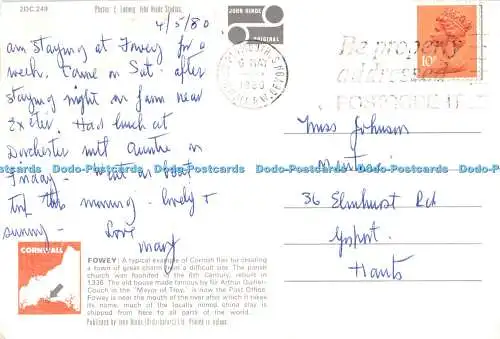 2DC.249
Photo: E. Ludwig, John Hinde Studios.
4/5/80
JOHN HINDE
ORIGINAL
am staying at Fowey for a
week. Came on Sat. after
staying night on farm near
Exeter. Had lunch at
Dorchester with Auntie on
Friday - went on boat
trip this morning - lovely &
sunny - Love
Mary
6 MAY
1980
Be properly
addressed
POSTCODE IT
10P
Miss Johnson
36 Elmhurst Rd
Gosport
Hants
Dodo-Postcards Dodo-Postcards Dodo-Postcards Dodo-Postcards
CORNWALL
FOWEY: A typical example of Cornish flair for creating
a town of great charm from a difficult site. The parish
church was founded in the 6th Century, rebuilt in
1336. The old house made famous by Sir Arthur Quiller-
Couch in the "Mayor of Troy," is now the Post Office.
Fowey is near the mouth of the river after which it takes its
name, much of the locally mined china clay is
shipped from here to all parts of the world.
Published by John Hinde (Distributors) Ltd. Printed in